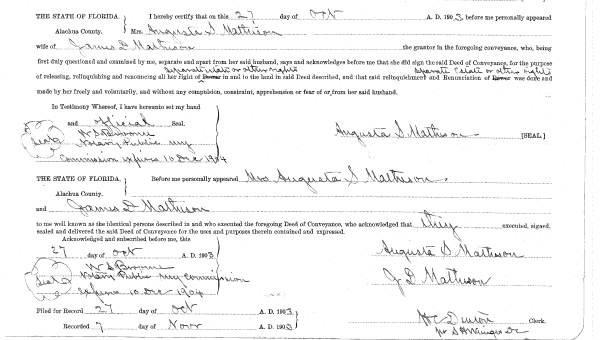 THE STATE OF FLORIDA. } I hereby certify that on this 27 day of Oct A. D. 1903, before me personally appeared
Alachua County. } Mrs. Augusta S Matheson
wife of James D Matheson the grantor in the foregoing conveyance, who, being
first duly questioned and examined by me, separate and apart from her said husband, says and acknowledges before me that she did sign the said Deed of Conveyance, for the purpose
separate estate or other rights separate estate or other rights
of releasing, relinquishing and renouncing all her right of Dower in and to the land in said Deed described, and that said relinquishment and Renunciation of Dower was done and
made by her freely and voluntarily, and without any compulsion, constraint, apprehension or fear of or from her said husband.
In Testimony Whereof, I have hereunto set my hand
and official Seal.
W S Broome
Seal Notary Public My Augusta S Matheson [SEAL]
Commission expires 10 Dec 1904
THE STATE OF FLORIDA. } Before me personally appeared Mrs Augusta S Matheson
Alachua County. }
and James D Matheson
to me well known as the identical persons described in and who executed the foregoing Deed of Conveyance, who acknowledged that they executed, signed,
sealed and delivered the said Deed of Conveyance for the uses and purposes therein contained and expressed.
Acknowledged and subscribed before me, this
27 day of Oct A. D. 1903 Augusta S Matheson
W S Broome
Seal Notary Public My Commission J D Matheson
expires 10 Dec 1904
Filed for Record 27 day of Oct A. D. 1903
Recorded 7 day of Novr A. D. 1903 Clerk.